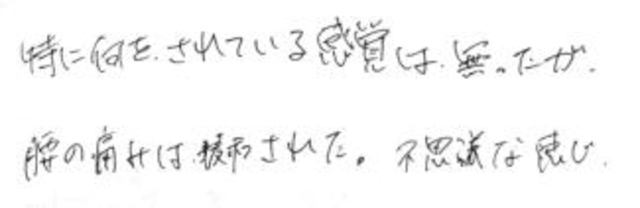 特に何を、されている感覚は、無ったが、
腰の痛みは、緩和された。不思議な感じ、